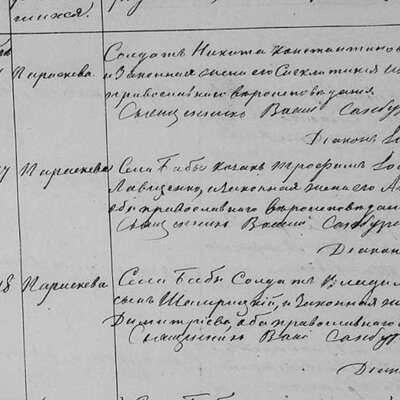 шихся.
Параскева
Солдатъ Никита Константинов
и законная жена его Синклитикия
православнаго вероисповедания
Священникъ Васил Самбур
Діаконъ
Параскева
Села Бабы козакъ Трофимъ
и законная жена его
оба православнаго вероисповедан
Священникъ Васил Самбур
Діакон
18
Параскева
Села Бабы Солдатъ Владим
сынъ и законная
Димитріева, оба православнаго
Священникъ Васил Самбур
Діак